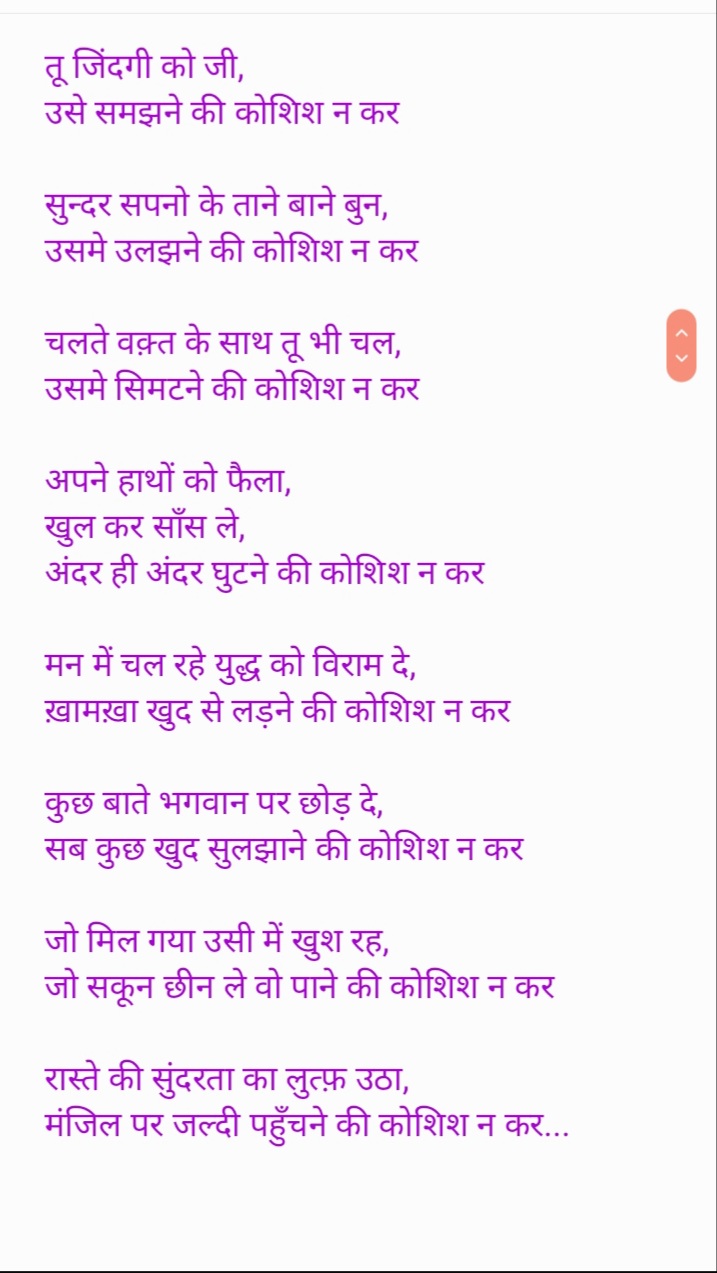 तू जिंदगी को जी,
उसे समझने की कोशिश न कर
सुन्दर सपनो के ताने बाने बुन,
उसमे उलझने की कोशिश न कर
चलते वक़्त के साथ तू भी चल,
उसमे सिमटने की कोशिश न कर
अपने हाथों को फैला,
खुल कर साँस ले,
अंदर ही अंदर घुटने की कोशिश न कर
मन में चल रहे युद्ध को विराम दे,
ख़ामख़ा खुद से लड़ने की कोशिश न कर
कुछ बाते भगवान पर छोड़ दे,
सब कुछ खुद सुलझाने की कोशिश न कर
जो मिल गया उसी में खुश रह,
जो सकून छीन ले वो पाने की कोशिश न कर
रास्ते की सुंदरता का लुत्फ़ उठा,
मंजिल पर जल्दी पहुँचने की कोशिश न कर...